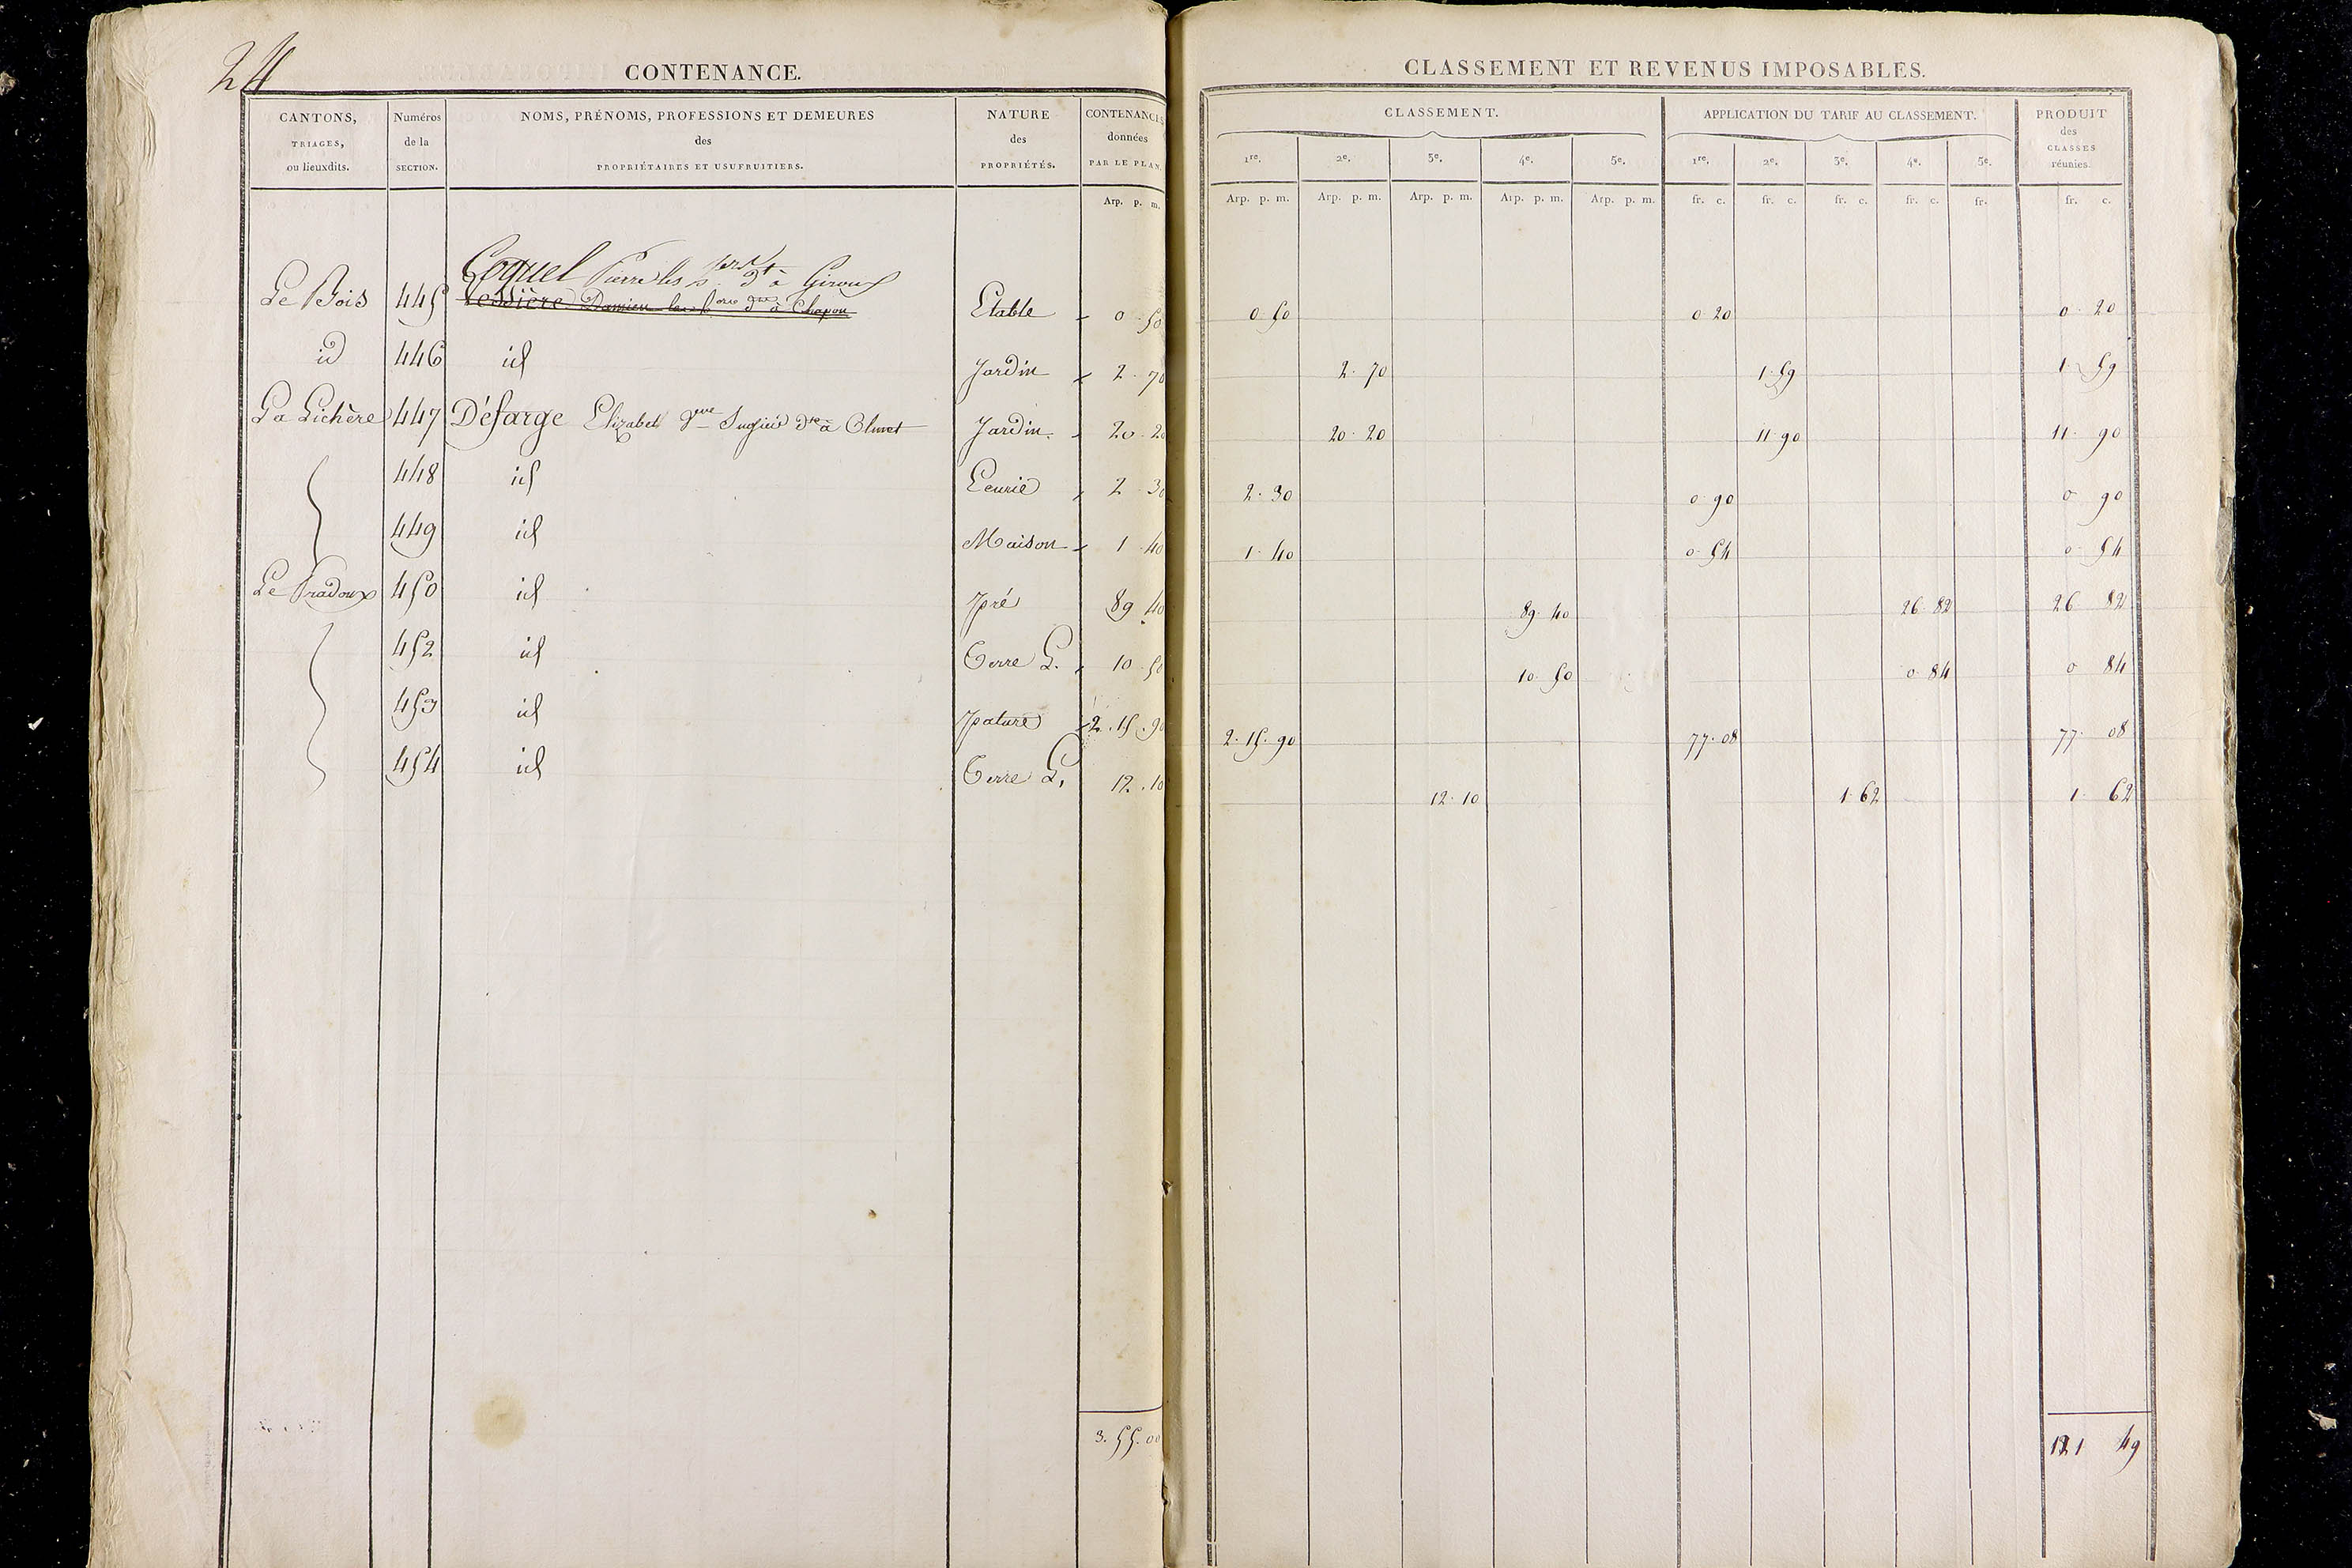 24
CONTENANCE.
CANTONS, TRIAGES, ou lieuxdits.
Numéros de la SECTION.
NOMS, PRÉNOMS, PROFESSIONS ET DEMEURES des PROPRIÉTAIRES ET USUFRUITIERS.
NATURE des PROPRIÉTÉS.
CONTENANCES données PAR LE PLAN.
Arp. p. m.
CLASSEMENT ET REVENUS IMPOSABLES.
CLASSEMENT.
APPLICATION DU TARIF AU CLASSEMENT.
PRODUIT des CLASSES réunies.
1re. 2e. 3e. 4e. 5e. 1re. 2e. 3e. 4e. 5e.
Arp. p. m. Arp. p. m. Arp. p. m. Arp. p. m. Arp. p. m. fr. c. fr. c. fr. c. fr. c. fr. fr. c.
Coquel Pierre les dt à Giroux
Le Bois 445 Damien à Chapon Etable 0 50 0 50 0 20 0 20
id 446 id Jardin 2 70 2 70 1 59 1 59
La Lichère 447 Défarge Elizabet dre à Clunet Jardin 20 20 20 20 11 90 11 90
448 id Ecurie 2 30 2 30 0 90 0 90
449 id Maison 1 40 1 40 0 54 0 54
Le Pradoux 450 id pré 89 40 89 40 26 82 26 82
452 id Terre L. 10 50 10 50 0 84 0 84
453 id pature 2. 15. 90 2. 15. 90 77 08 77 08
454 id Terre L. 12. 10 12 10 1 62 1 62
3. 55. 00 121 49